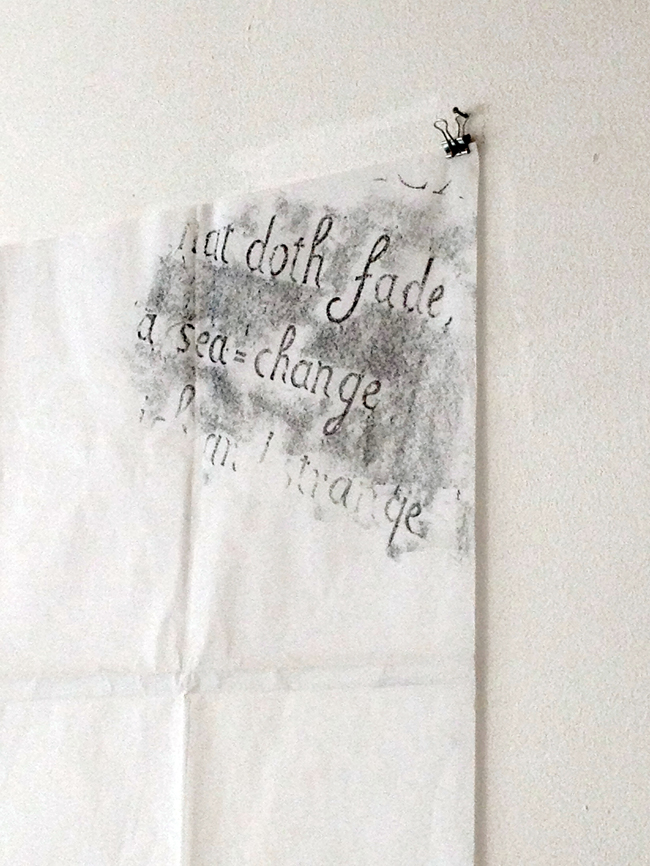 hat doth fade,
a sea=change
and strange